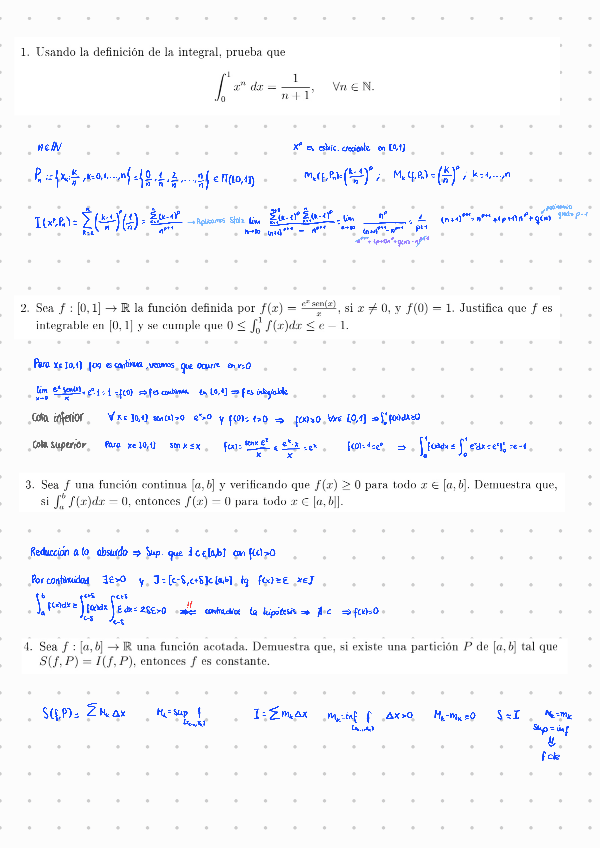 1. Usando la definición de la integral, prueba que
∫₀¹ xⁿ dx = 1/(n+1), ∀n ∈ ℕ.
n∈ℕ xᵖ es estric. creciente en [0,1]
Pₙ := {xₖ: k/n, k=0,1,...,n} = {0/n, 1/n, 2/n, ..., n/n} ∈ Π([0,1]) mₖ(f,Pₙ)=((k-1)/n)ᵖ ; Mₖ(f,Pₙ)=(k/n)ᵖ, k=1,...,n
I(xᵖ,Pₙ) = ∑ ((k-1)/n)ᵖ (1/n) = ∑(k-1)ᵖ / nᵖ⁺¹ → Aplicamos Stolz lim n→∞ = lim n→∞ nᵖ / ((n+1)ᵖ⁺¹ - nᵖ⁺¹) = 1/(p+1) (n+1)ᵖ⁺¹ = nᵖ⁺¹ + (p+1)nᵖ + q(n) → polinomio grado p-1
2. Sea f : [0, 1] → ℝ la función definida por f(x) = eˣ sen(x)/x, si x ≠ 0, y f(0) = 1. Justifica que f es
integrable en [0, 1] y se cumple que 0 ≤ ∫₀¹ f(x)dx ≤ e − 1.
Para x∈]0,1] f(x) es continua, veamos que ocurre en x=0
lim x→0 eˣ sen(x)/x = e⁰·1 = 1 = f(0) ⇒ f es continua en [0,1] ⇒ f es integrable
Cota inferior ∀x∈]0,1] sen(x)>0 eˣ>0 y f(0)=1>0 ⇒ f(x)≥0 ∀x∈[0,1] ⇒ ∫₀¹ f(x)dx≥0
Cota superior Para x∈]0,1] sen x ≤ x f(x) = senx eˣ/x ≤ eˣ·x/x = eˣ f(0)=1=e⁰ ⇒ ∫₀¹ f(x)dx ≤ ∫₀¹ eˣdx = eˣ]₀¹ = e-1
3. Sea f una función continua [a, b] y verificando que f(x) ≥ 0 para todo x ∈ [a, b]. Demuestra que,
si ∫ₐᵇ f(x)dx = 0, entonces f(x) = 0 para todo x ∈ [a, b]].
Reducción a lo absurdo ⇒ Sup. que ∃ c∈[a,b] con f(c)>0
Por continuidad ∃ε>0 y J=[c-δ,c+δ]⊂[a,b] tq f(x)≥ε x∈J
∫ₐᵇ f(x)dx ≥ ∫ f(x)dx ≥ ∫ ε dx = 2δε>0 ⇒⇐ contradice la hipótesis ⇒ ∄ c ⇒ f(x)=0
4. Sea f : [a, b] → ℝ una función acotada. Demuestra que, si existe una partición P de [a, b] tal que
S(f, P) = I(f, P), entonces f es constante.
S(f,P) = ∑ Mₖ Δx Mₖ = sup f [xₖ₋₁,xₖ] I = ∑ mₖ Δx mₖ = inf f [xₖ₋₁,xₖ] Δx>0 Mₖ-mₖ≥0 S=I Mₖ=mₖ
sup=inf
⇓
f cte